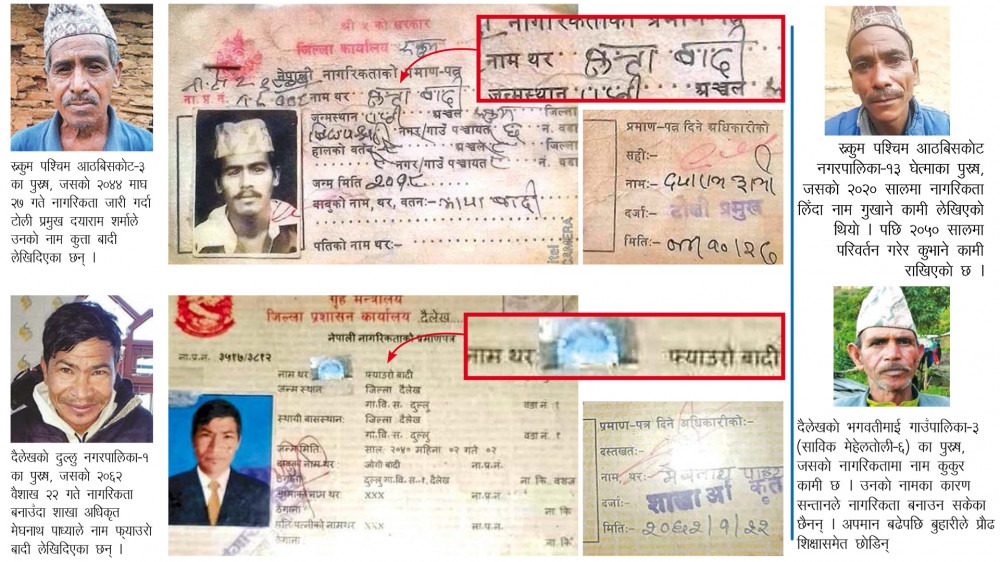 रुकुम पश्चिम आठबिसकोट-३
का पुरुष, जसको २०४४ माघ
२७ गते नागरिकता जारी गर्दा
टोली प्रमुख दयाराम शर्माले
उनको नाम कुत्ता बादी
लेखिदिएका छन् ।
श्री ५ को सरकार
जिल्ला कार्यालय रुकुम
नेपाली नागरिकताको प्रमाण-पत्र
ना. प्र. नं.
नाम थर बादी
जन्मस्थान अञ्चल जिल्ला
नगर/गाउँ पञ्चायत ६ नं. वडा
हालको वतन अञ्चल जिल्ला
नगर/गाउँ पञ्चायत नं. वडा
जन्म मिति
बाबुको नाम, थर, वतन:- बादी
पतिको नाम थर:-
नागरिकताको प्रमाण
नाम थर बादी
जन्मस्थान अञ्चल
प्रमाण-पत्र दिने अधिकारीको
सही:-
नाम:-
दर्जा:- टोली प्रमुख
मिति:-
रुकुम पश्चिम आठबिसकोट
नगरपालिका-१३ घेत्माका पुरुष,
जसको २०२० सालमा नागरिकता
लिँदा नाम गुखाने कामी लेखिएको
थियो । पछि २०५० सालमा
परिवर्तन गरेर कुभाने कामी
राखिएको छ ।
दैलेखको दुल्लु नगरपालिका-१
का पुरुष, जसको २०६२
वैशाख २२ गते नागरिकता
बनाउंदा शाखा अधिकृत
मेघनाथ पाध्याले नाम फ्याउरो
बादी लेखिदिएका छन् ।
गृह मन्त्रालय
जिल्ला प्रशासन कार्यालय दैलेख
नेपाली नागरिकताको प्रमाणपत्र
ना.प्र.न. ३५१७/३८१२
नाम थर फ्याउरो बादी
जन्म स्थान जिल्ला दैलेख
गा.वि.स. दुल्लु वडा नं. १
स्थायी बासस्थान: जिल्ला दैलेख
गा.वि.स. दुल्लु वडा नं. १
जन्म मिति: साल: २०४० महिना ०२ गते ०२
नाम थर: जोगी बादी ना.प्र.न.
ठेगाना: दुल्लु गा.वि.स.-१, दैलेख ना. कि. वंशज
नाम थर xxx ना.प्र.न.
ठेगाना ना. कि
नामथर xxx ना.प्र.न.
ठेगाना ना. कि.
नाम थर फ्याउरो बादी
प्रमाण-पत्र दिने अधिकारीको:-
दस्तखत:-
नाम, थर:- मेघनाथ
दर्जा:- शाखा
मिति:- २०६२/१/२२
दैलेखको भगवतीमाई गाउँपालिका-३
(साविक मेहेलतोली-६) का पुरुष,
जसको नागरिकतामा नाम कुकुर
कामी छ । उनको नामका कारण
सन्तानले नागरिकता बनाउन सकेका
छैनन् । अपमान बढेपछि बुहारीले प्रौढ
शिक्षासमेत छोडिन्